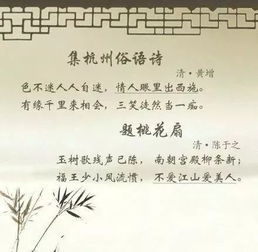 集杭州俗语诗
清·黄增
色不迷人人自迷，情人眼里出西施。
有缘千里来相会，三笑徒然当一痴。
题桃花扇
清·陈于之
玉树歌残声已陈，南朝宫殿柳条新；
福王少小风流惯，不爱江山爱美人。